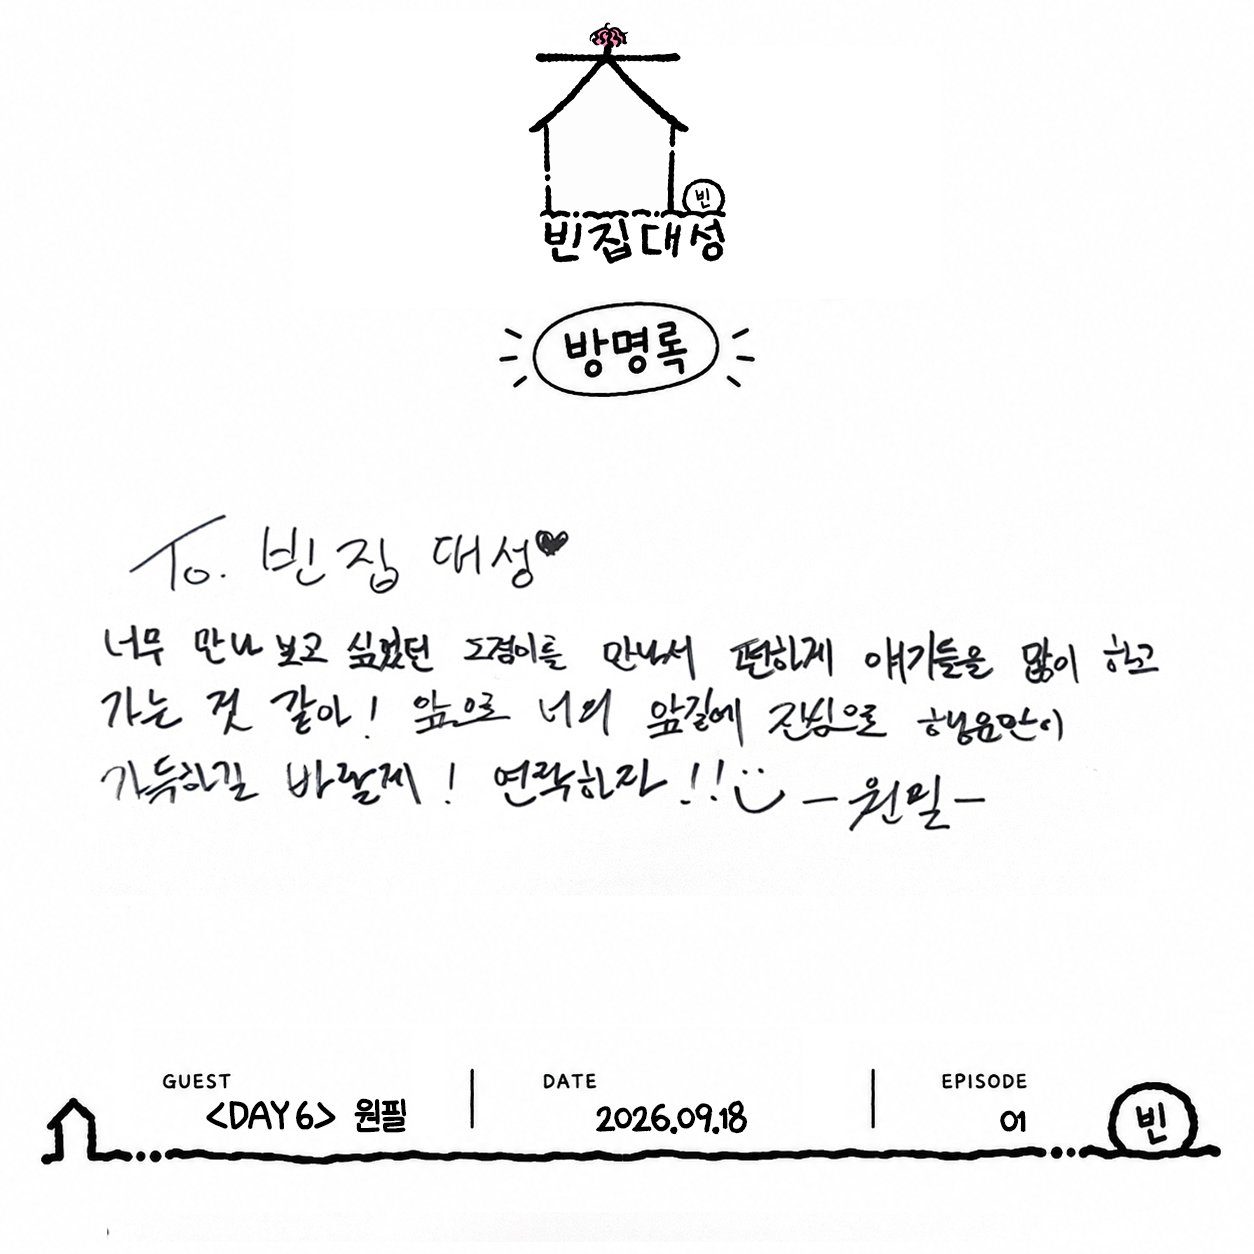 빈
빈집대성
방명록
To. 빈집 대성♥
너무 만나 보고 싶었던 도겸이를 만나서 편하게 얘기들을 많이 하고
가는 것 같아! 앞으로 너의 앞길에 진심으로 행운만이
가득하길 바랄게! 연락하자!! -원필-
GUEST DATE EPISODE
<DAY6> 원필 2026.09.18 01
빈